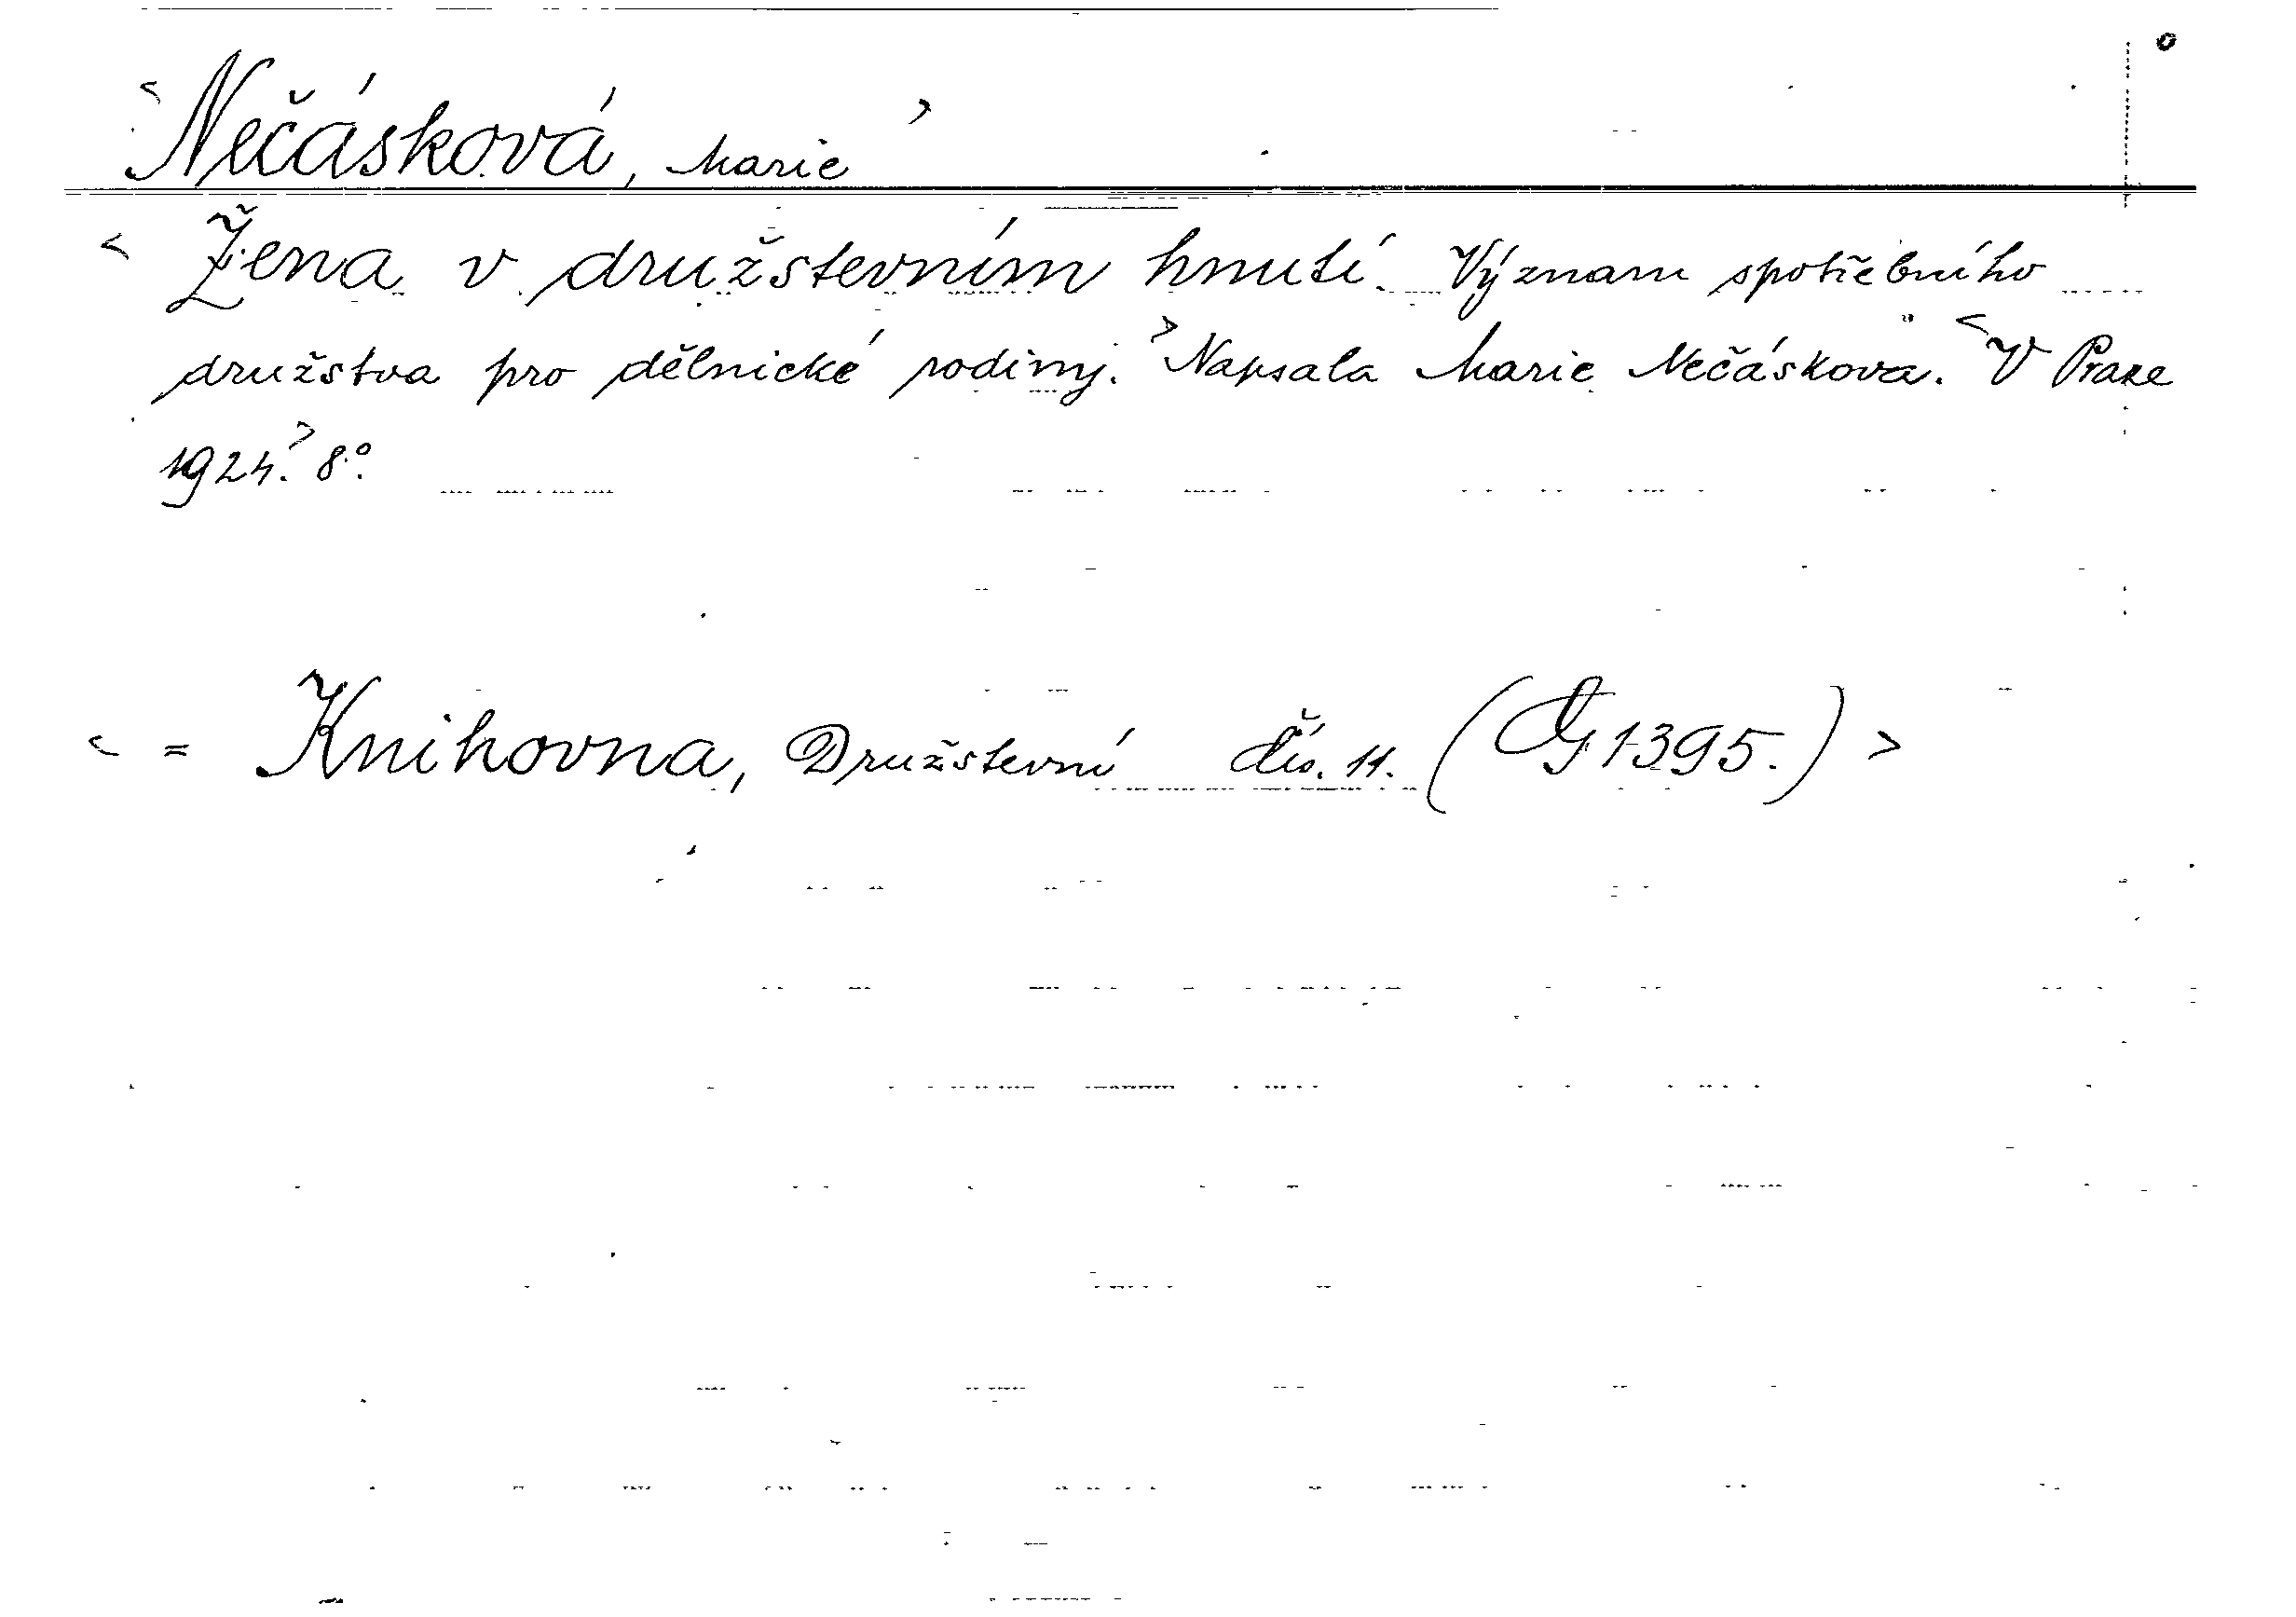 <Nečásková, Marie>
<Žena v družstevním hnutí. Význam spotřebního
družstva pro dělnické rodiny.> Napsala Marie Nečásková. <V Praze
1924.> 8°.
<= Knihovna, Družstevní čís. 11. (G 1395.)>